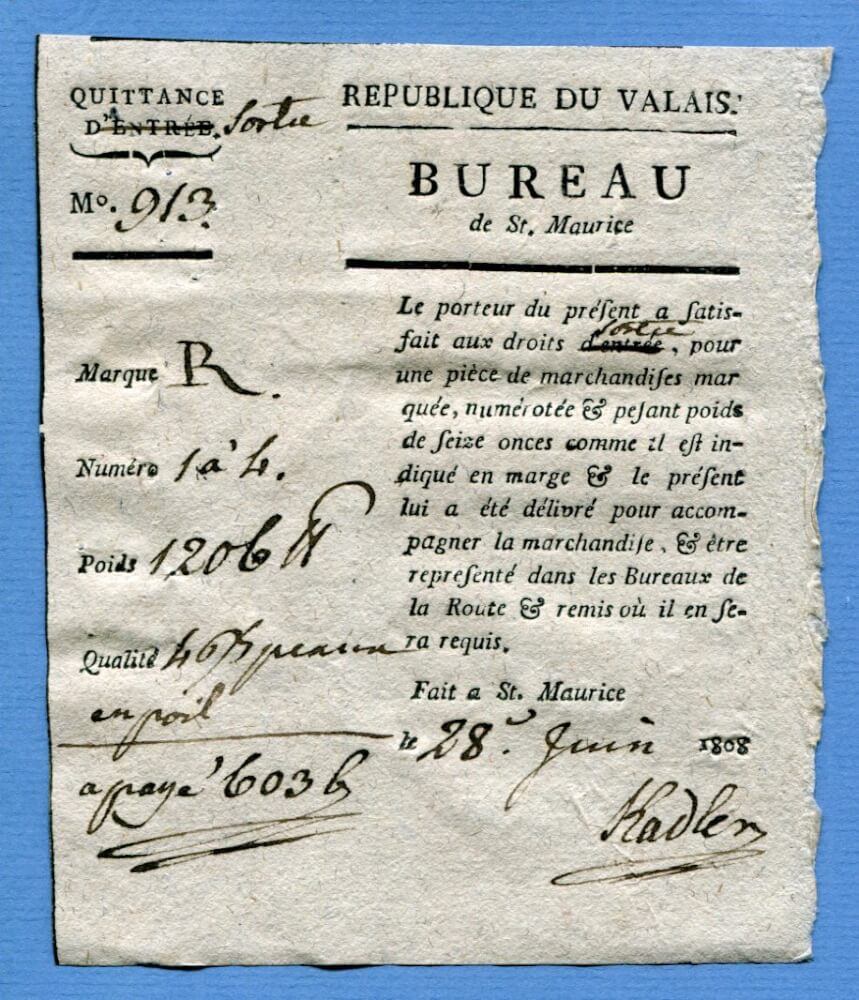 QUITTANCE
D'ENTRÉE. Sortie
Mº. 913.
Marque R.
Numéro 1 à 4.
Poids 1206 ℔
Qualité 4 peaux
en poil
a payé 603 b
REPUBLIQUE DU VALAIS.
BUREAU
de St. Maurice
Le porteur du préſent a ſatis-
fait aux droits d'entrée, sortie pour
une pièce de marchandiſes mar
quée, numérotée & peſant poids
de ſeize onces comme il eſt in-
diqué en marge & le préſent
lui a été délivré pour accom-
pagner la marchandiſe, & être
repreſenté dans les Bureaux de
la Route & remis où il en ſe-
ra requis.
Fait a St. Maurice
le 28. Juin 1808
Kadler